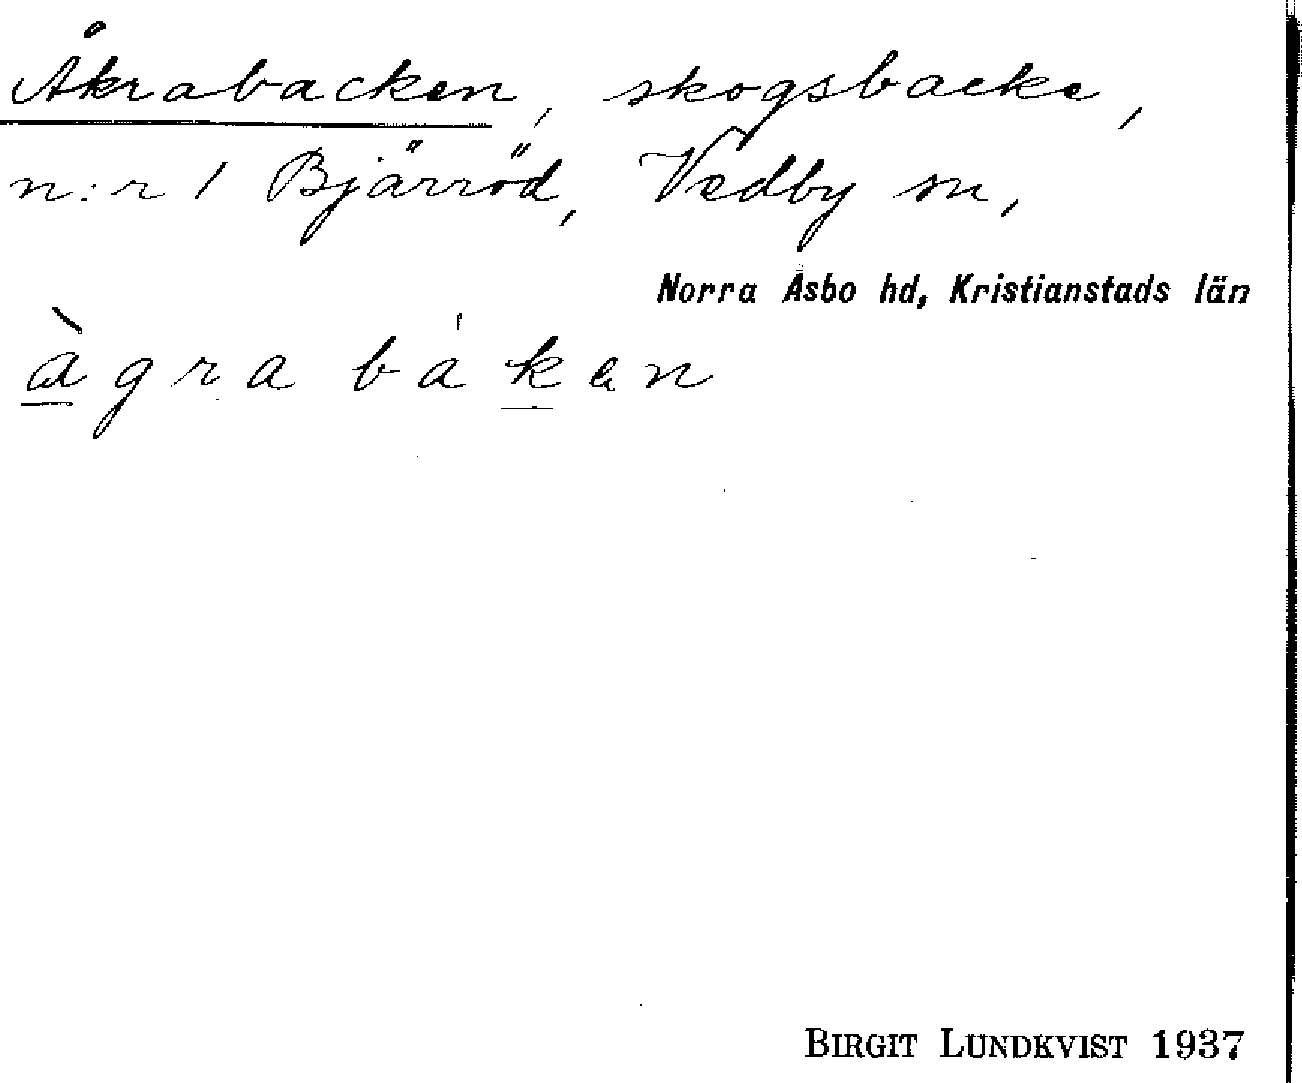 Åkrabacken, skogsbacke,
n:r 1 Bjärröd, Vedby sn,
Norra Åsbo hd, Kristianstads län
àgra báken
BIRGIT LUNDKVIST 1937